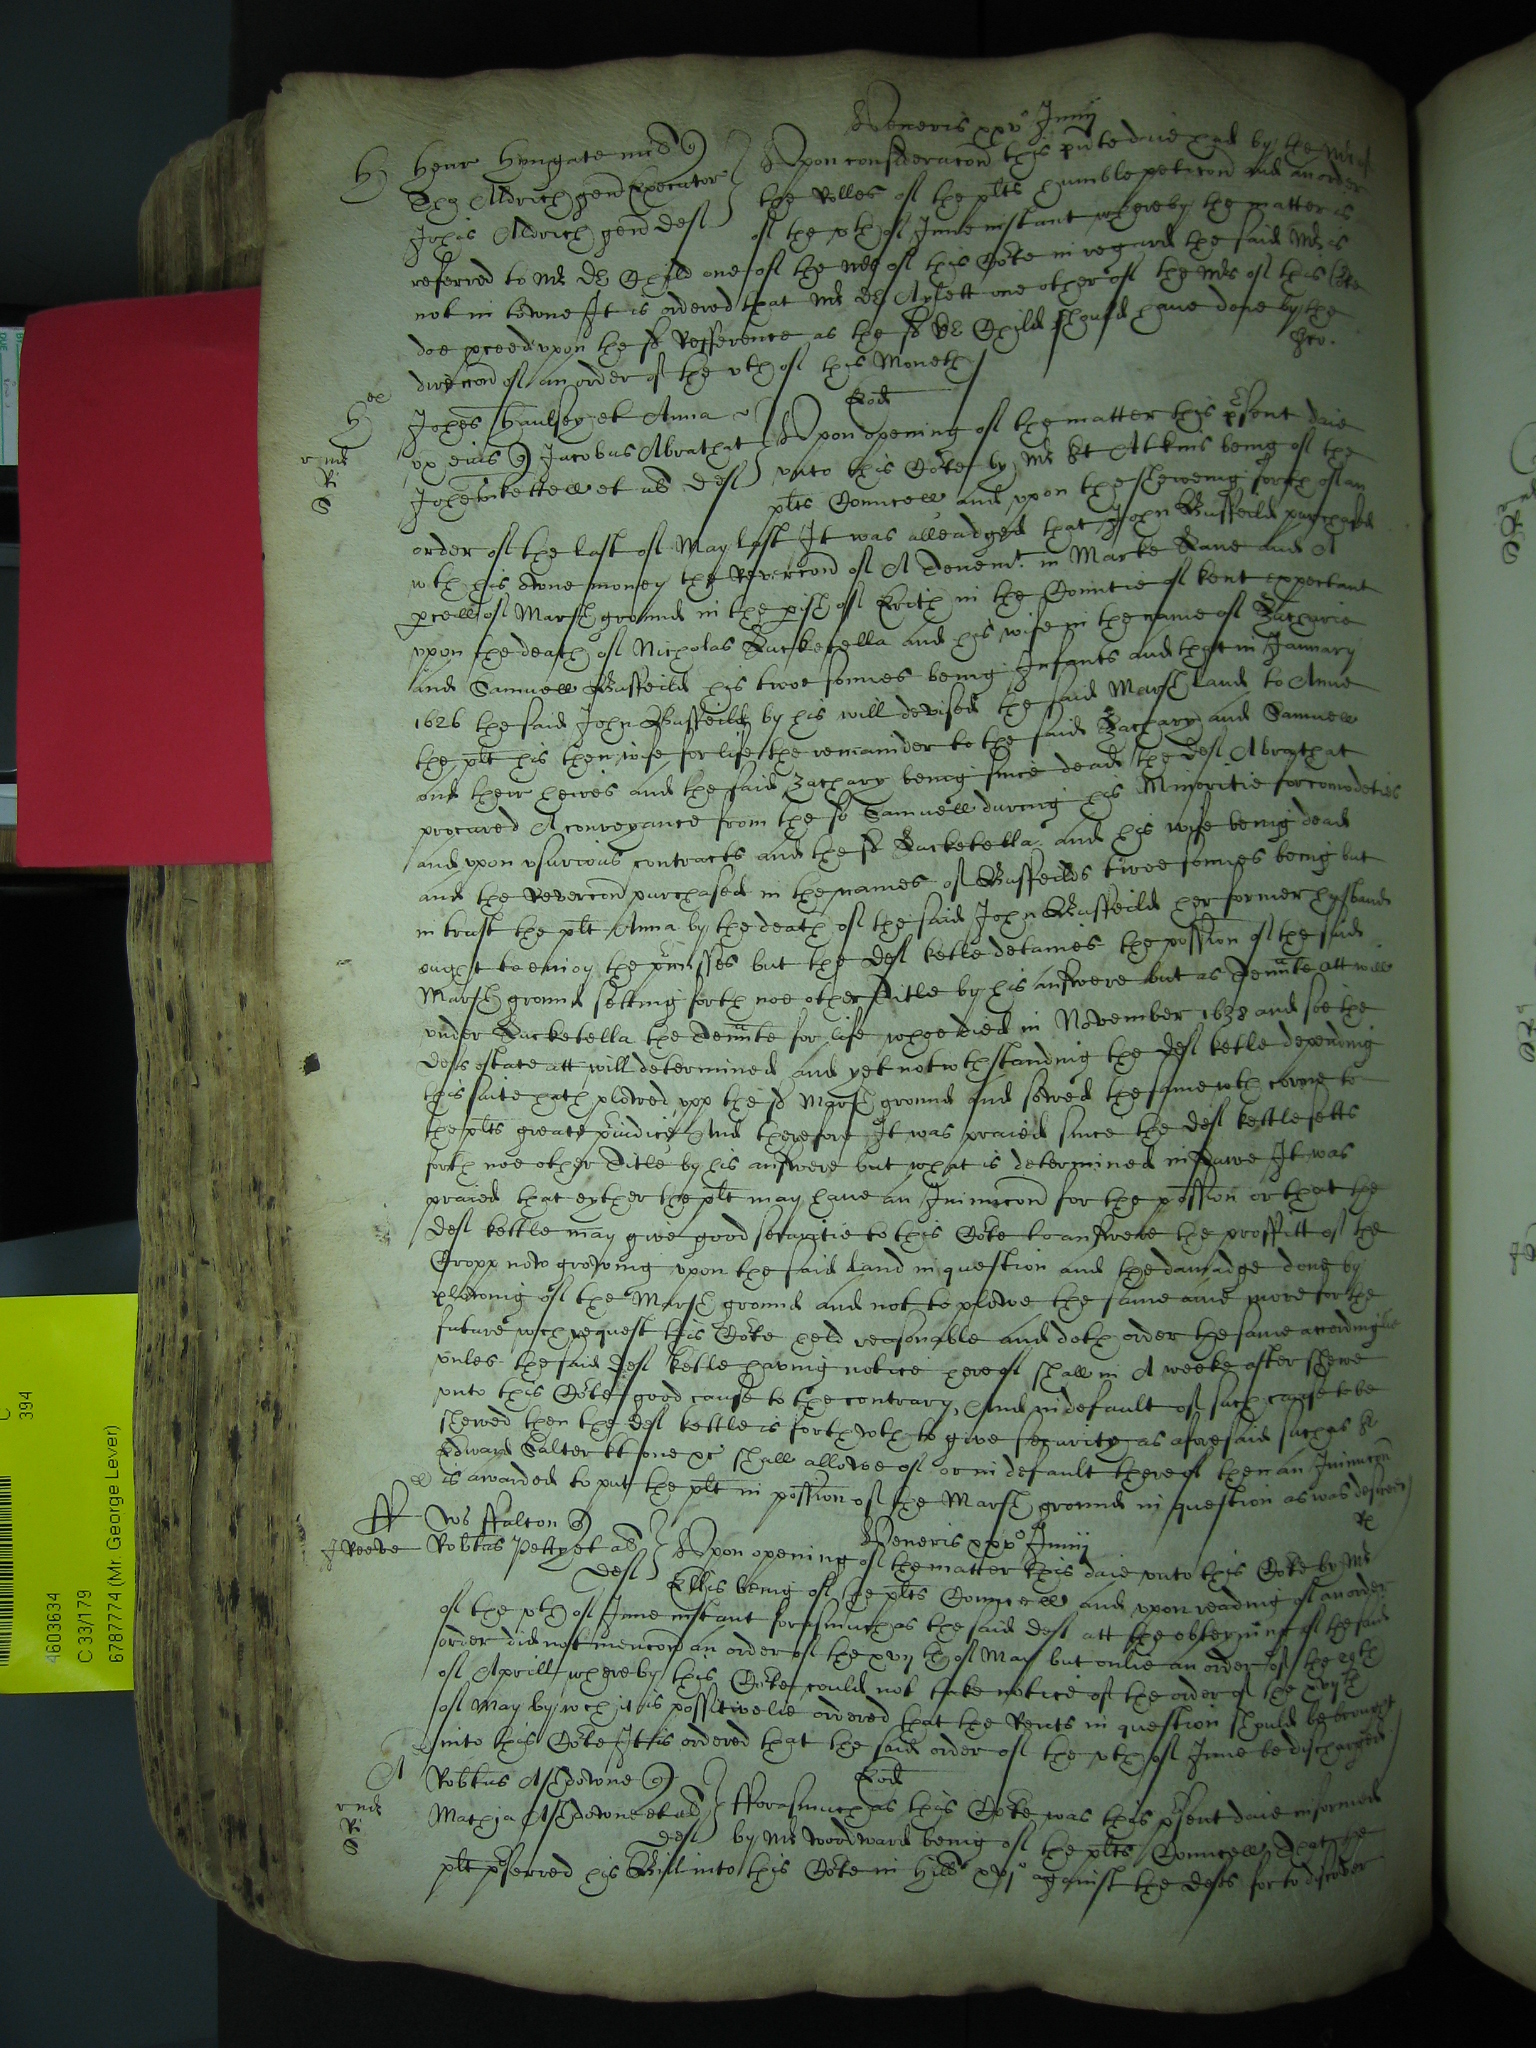 Veneris xxvº Junij
H Henr Hyngate mil q
Tho Aldrich gen Executor
Johis Aldrich gen def
Upon consideracon this pnte daie had by the Mr of
the Rolles of the plts humble peticon and an order
of the vth of June instant whereby the matter is
referred to Mr Dr Child one of the Mrs of this Corte in regard the said Mr is
not in towne It is ordered that Mr Dr Aylett one other of the Mrs of this Corte
doe pceed upon the sd Refference as the sd Dr Child should have done by the
direccon of an order of the vth of this Moneth
H Johes Haulsey et Anna
ux eius q Jacobus Abrathat
Johes kettell et al def
r mr
Ri
S
Eod
Upon opening of the matter this psent daie
unto this Corte by Mr Atkins being of the
plts Councell and upon the shewing forth of an
order of the last of May last It was alleadged that John Busfeild purchased
wth his owne money the Revercon of A Tenemt in Marke Lane and A
pcell of Marsh ground in the pish of Erith in the Countie of kent expectant
upon the death of Nicholas Lucketella and his wife in the name of Zacharie
and Samuell Busfeild his twoe sonnes being Infants and that in January
1626 the said John Busfeild by his will devised the said Marsh land to Anne
the plt his then wife for life the remainder to the said Zachary and Samuell
and their heires and the said Zachary being since dead the def Abrathat
procured A conveyance from the sd Samuell during his Minoritie for comodeties
and upon usurious contracts and the sd Lucketella and his wife being dead
and the Revercon purchased in the names of Busfeilds twoe sonnes being but
in trust the plt Anna by the death of the said John Busfeild her former husband
ought to enioy the pmisses but the def ketle detaines the possion of the said
Marsh ground setting forth noe other Title by his answere but as Tennte att will
under Lucketella the Tennte for life whoe died in November 1638 and soe the
defs estate att will determined and yet notwthstanding the def ketle depending
this suite hath plowed upp the sd Marsh ground and sowed the same wth corne to
the plts greate piudice And therefore It was praied since the def kettle setts
forth noe other Title by his answere but what is determined in Lawe It was
praied that eyther the plt may have an Iniunccon for the possion or that the
def kettle may give good securitie to this Corte to answere the proffitt of the
Cropp now growing upon the said Land in question and the damadge done by
plowing of the Marsh ground and not to plowe the same anie more for the
future wch request this Corte held reasonable and doth order the same accordinglie
unles the said def ketle having notice hereof shall in A weeke after shewe
unto this Corte good cause to the contrary, And in default of such cause to be
shewed then the def kettle is forthwth to give security as aforesaid such as Sr
Edward Salter kt one &c shall allowe of or in default thereof then an Iniunccon
is awarded to put the plt in possion of the Marsh ground in question as was desired
ff
J Reeve
Ws ffalton q
Robtus Petty et al
def
Veneris xxvº Junij
Upon opening of the matter this daie unto this Corte by Mr
Ellis being of the plts Councell and upon reading of an order
of the vth of June instant forasmuch as the said def att the obteyning of the said
order did not mencon an order of the xvijth of May but onlie an order of the 29th
of Aprill whereby this Corte could not take notice of the order of the xvijth
of May by wch it is possitivelie ordered that the Rents in question should be brought
into this Corte It is ordered that the said order of the vth of June be discharged
A
r mr
Ri
S
Robtus Ashdowne q
Mathia Ashdowne et al
def
Eod
fforasmuch as this Corte was this psent daie informed
by Mr Woodward being of the plts Councell That the
plt pferred his Bill into this Corte in Hill xvjº against the defs for to discover
4603634
C 33/179
6787774 (Mr. George Lever)
C
394